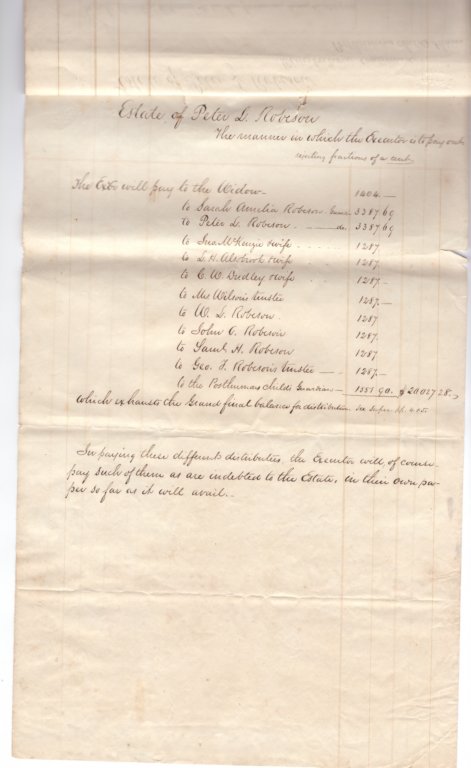 Estate of Peter L. Robeson
The manner in which the Executor is to pay out
rejecting fractions of a cent.
The Extr will pay to the Widow 1404.—
to Sarah Amelia Robeson 3387 69
to Peter L. Robeson — do. 3387 69
to Geo. McKenzie & wife 1287
to L. H. Alsbrook & wife 1287
to C. W. Dudley & wife 1287.—
to Mrs Wilson's trustee 1287.—
to W. L. Robeson 1287.
to John C. Robeson 1287.
to Saml. H. Robeson 1287
to Geo. F. Robeson's trustee — 1287.—
to the Posthumas child's Guardian — 1551 90. $20027 28.
which exhausts the Grand final balance for distribution
In paying these different distributees, the Executor will of course
pay such of them as are indebted to the Estate, in their own pa-
per so far as it will avail.—